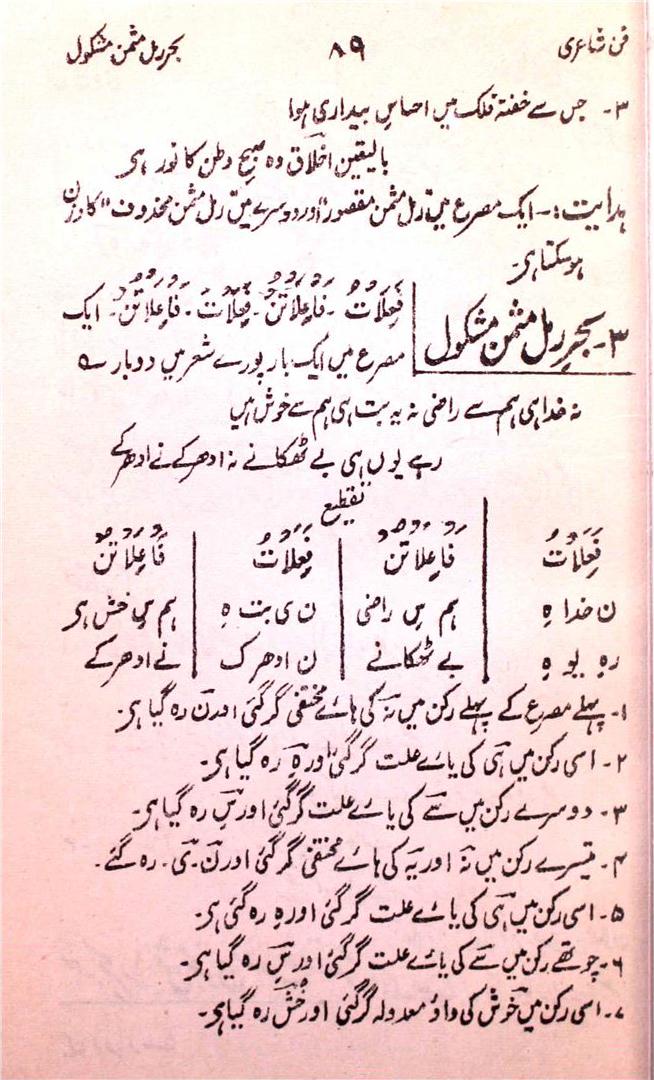 فن شاعری ۸۹ بحر رمل مثمن مشکول
۳۔ جس سے خفتۂ فلک میں احساسِ بیداری ہوا
بالیقیں اخلاق وہ صبحِ وطن کا نور ہی
ہدایت:۔ ایک مصرع میں "رمل مثمن مقصور" اور دوسرے میں "رمل مثمن محذوف" کا وزن
ہوسکتا ہی۔
۳۔ بحر رمل مثمن مشکول
فَعِلَاتُ ۔ فَاعِلَاتُن ۔ فَعِلَاتُ ۔ فَاعِلَاتُن ۔ ایک
مصرع میں ایک بار پورے شعر میں دوبار ے
نہ خدا ہی ہم سے راضی نہ یہ بت ہی ہم سے خوش ہیں
رہے یوں ہی بے ٹھکانے نہ ادھر کے نے ادھر کے
تقطیع
فَعِلَاتُ | فَاعِلَاتُن | فَعِلَاتُ | فَاعِلَاتُن
ن خدا ہِ | ہم سِ راضی | ن ی بت ہِ | ہم سِ خش ہی
رہِ یو ہِ | بے ٹھکانے | ن ادھر ک | نے ادھر کے
۱۔ پہلے مصرع کے پہلے رکن میں نہ کی ہائے مختفی گر گئی اور ن رہ گیا ہی۔
۲۔ اسی رکن میں ہی کی یائے علت گر گئی اور ہِ رہ گیا ہی۔
۳۔ دوسرے رکن میں سے کی یائے علت گر گئی اور سِ رہ گیا ہی۔
۴۔ تیسرے رکن میں نہ اور یہ کی ہائے مختفی گر گئی اور ن۔ ی۔ رہ گئے۔
۵۔ اسی رکن میں ہی کی یائے علت گر گئی اور ہِ رہ گئی ہی۔
۶۔ چوتھے رکن میں سے کی یائے علت گر گئی اور سِ رہ گیا ہی۔
۷۔ اسی رکن میں خوش کی واؤ معدولہ گر گئی اور خُش رہ گیا ہی۔